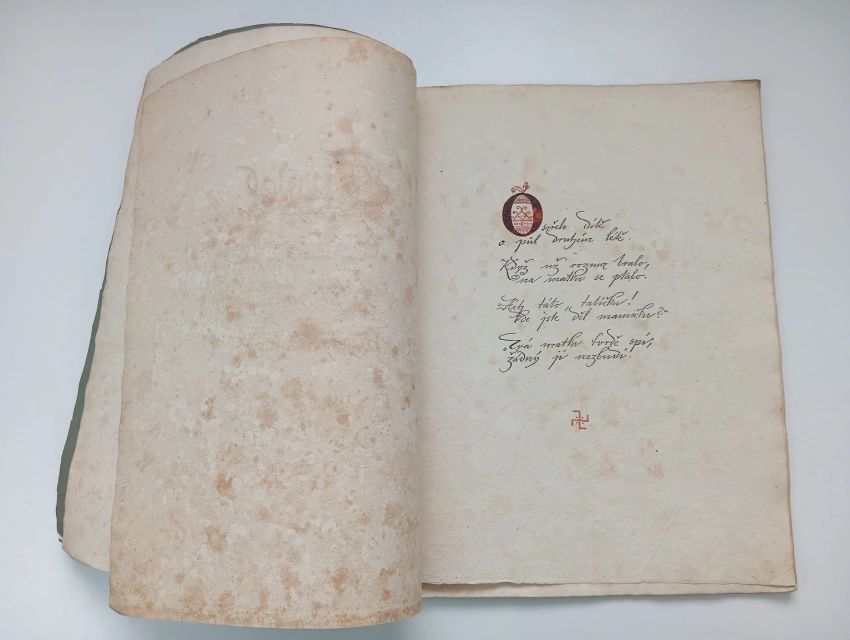 Osiřelo dítě
o půl druhém létě.
Když už rozum bralo,
na matku se ptalo.
"Ach táto, tatíčku!
kde jste děl mamičku?"
"Tvá matka tvrdě spí,
žádný jí nezbudí."